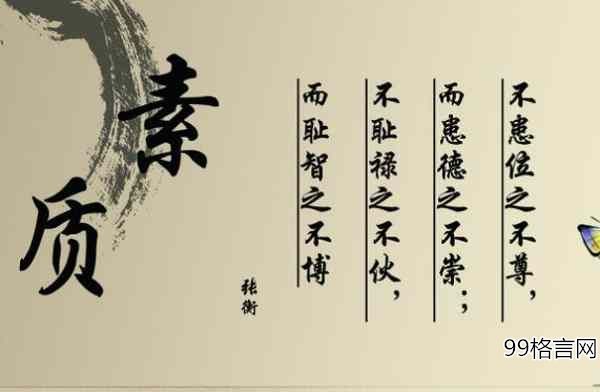 素质
不患位之不尊，
而患德之不崇；
不耻禄之不伙，
而耻智之不博
张衡
99格言网